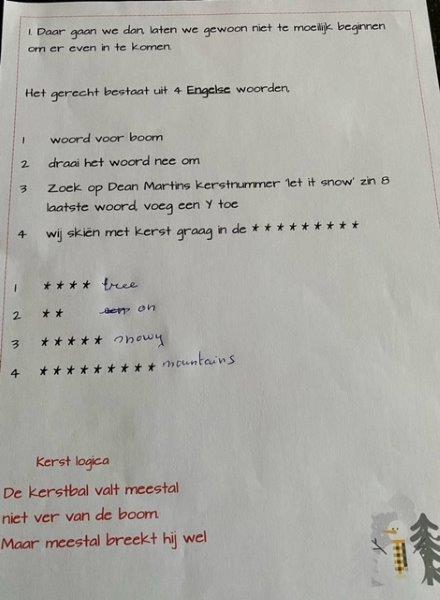 1. Daar gaan we dan, laten we gewoon niet te moeilijk beginnen
om er even in te komen.
Het gerecht bestaat uit 4 Engelse woorden,
1 woord voor boom
2 draai het woord nee om
3 Zoek op Dean Martins kerstnummer 'let it snow' zin 8
laatste woord, voeg een Y toe
4 wij skiën met kerst graag in de * * * * * * * * *
1 * * * * tree
2 * * een on
3 * * * * * snowy
4 * * * * * * * * * mountains
Kerst logica
De kerstbal valt meestal
niet ver van de boom.
Maar meestal breekt hij wel